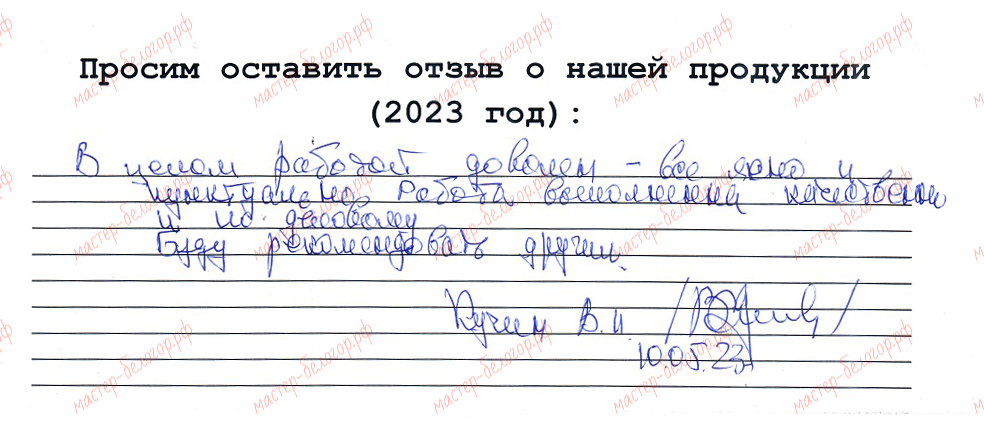 Просим оставить отзыв о нашей продукции
(2023 год):
В целом работой доволен - все ясно и
пунктуально. Работа выполненна качественно
и по деловому
Буду рекомендовать другим.
Кучин В.И
10.05.23
мастер-белогор.рф